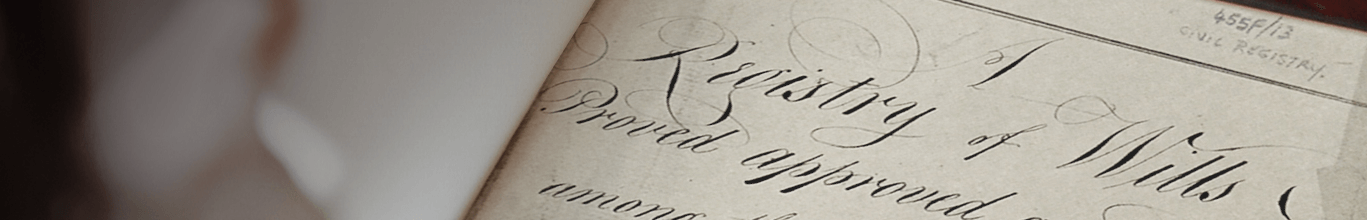 455F/13
CIVIL REGISTRY.
A
Registry of Wills
Proved approved
among the